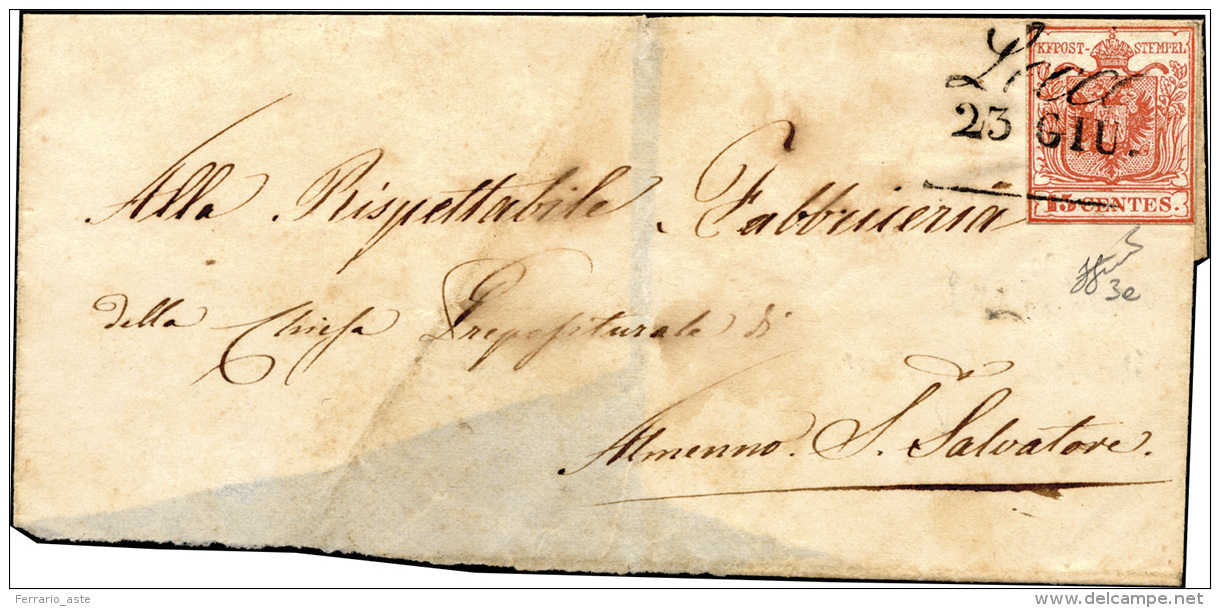 KKPOST-STEMPEL
23 GIU.
15 CENTES.
Alla Rispettabile Fabbriceria
della Chiesa Prepositurale di
Almenno S. Salvatore.
3e
Ferrario_aste
www.delcampe.net